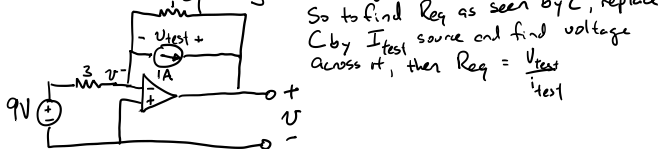 So to find Req as seen by C, replace
C by Itest source and find voltage
across it, then Req = Vtest / itest
- Vtest +
1A
3
v-
9V
+
v
-